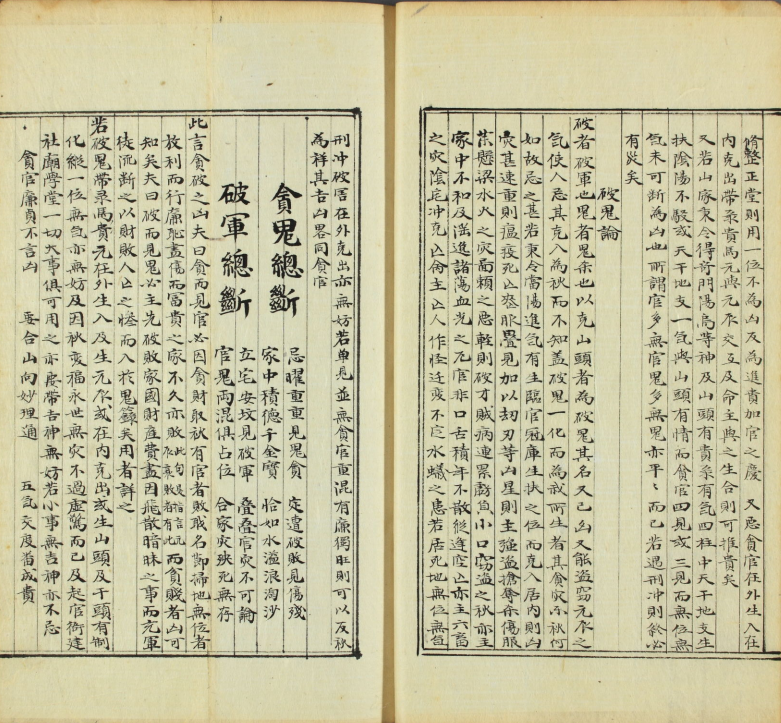 脩整正堂則用一位不為凶反為進貴加官之慶　又忌貪官在外生入在
內克出帶祿貴馬元與元辰交互及命主與之生合則可推貴矣
又若山家秉令得奇門陽烏等神及山頭有貴祿有氣四柱中天干地支生
扶陰陽不駁或天干地支一氣與山頭有情而貪官四見或三見而無位無
氣未可斷為凶也所謂官多無官鬼多無鬼亦平〻而已若遇刑冲則終必
有災矣
破鬼論
破者破軍也鬼者鬼杀也以克山頭者為破鬼其名又已凶又能盜竊元辰之
氣使入忌其克入為秋而不知盖破鬼一化而為 所生者其貪灾小秋何
如故忌之甚若秉令當陽進氣有生臨官冠庫生扶之位而克入居內則凶
灾甚速重則瘟疫死亡孝服疊見加以劫刃等凶星則主強盜搶奪杀傷服
藥懸梁水火之灾面賴之患輕則破才賊病連累虧負小口竊盜之秋亦主
家中不和及淫進諸蕩血光之厄官非口舌積年不散縱逢空亡亦主六畜
之灾陰庇冲克亡命主亡人作怪迁变不定水蟻之患若居死地無位無氣
刑冲破害在外克出亦無妨若单見並無貪官重混有廉獨旺則可以反秋
為祥其吉凶畧同貪官
貪鬼總斷
忌曜重重見鬼貪　定遭破敗見傷殘
家中積德千金寶　恰如水溢浪淘沙
破軍總斷
立宅安坟見破軍　叠叠官灾不可論
官鬼兩混俱占位　合家灾殃死無存
此言貪破之凶夫曰貪而見官必因貪財取秋有官者敗戒名節掃地無位者
放利而行廉恥盡傷而富貴之家不久亦敗 而貪賤者凶可
知矣夫曰破而見鬼必主先破敗家國財產費盡因飛散暗昧之事而充軍
徒流斷之以財敗人亡之慘而入於鬼籙矣用者詳之
若破鬼帶祿馬貴元在外生入及生元辰或在內克出或生山頭及干頭有制
化縱一位無氣亦無妨及因秋变福永世無灾不過虛驚而已及起官衙建
社廟學堂一切大事俱可用之亦要帶吉神無妨若小事無吉神亦不忌
貪官廉貞不言凶　要合山向妙理通　五氣交度畨成貴